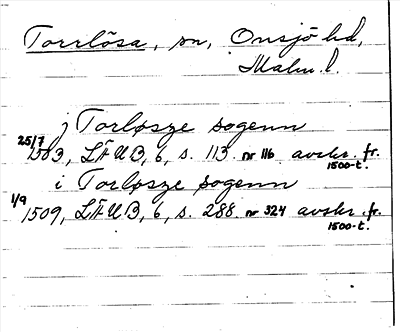 Torrlösa, sn, Onsjö hd,
Malm. l.
j Torløsze sogenn
25/7 1503, LÄUB, 6, s. 113. nr 116 avskr. fr. 1500-t.
i Torløsze sogenn
1/9 1509, LÄUB, 6, s. 288. nr 324 avskr. fr. 1500-t.